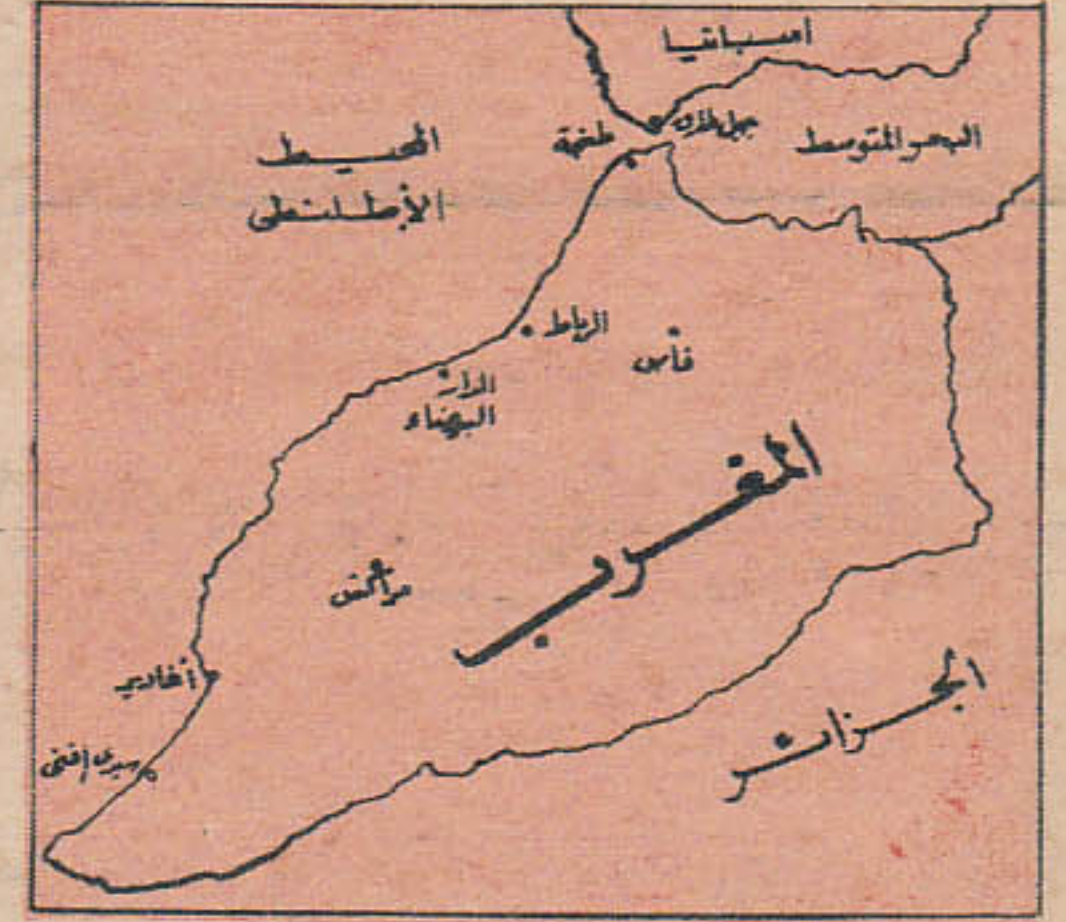 اسبانيا
جبل طارق
البحر المتوسط
طنجة
المحيط
الأطلنطى
الرباط
فأس
الدار
البيضاء
المغرب
مراكش
أغادير
سيدى إفنى
الجزائر